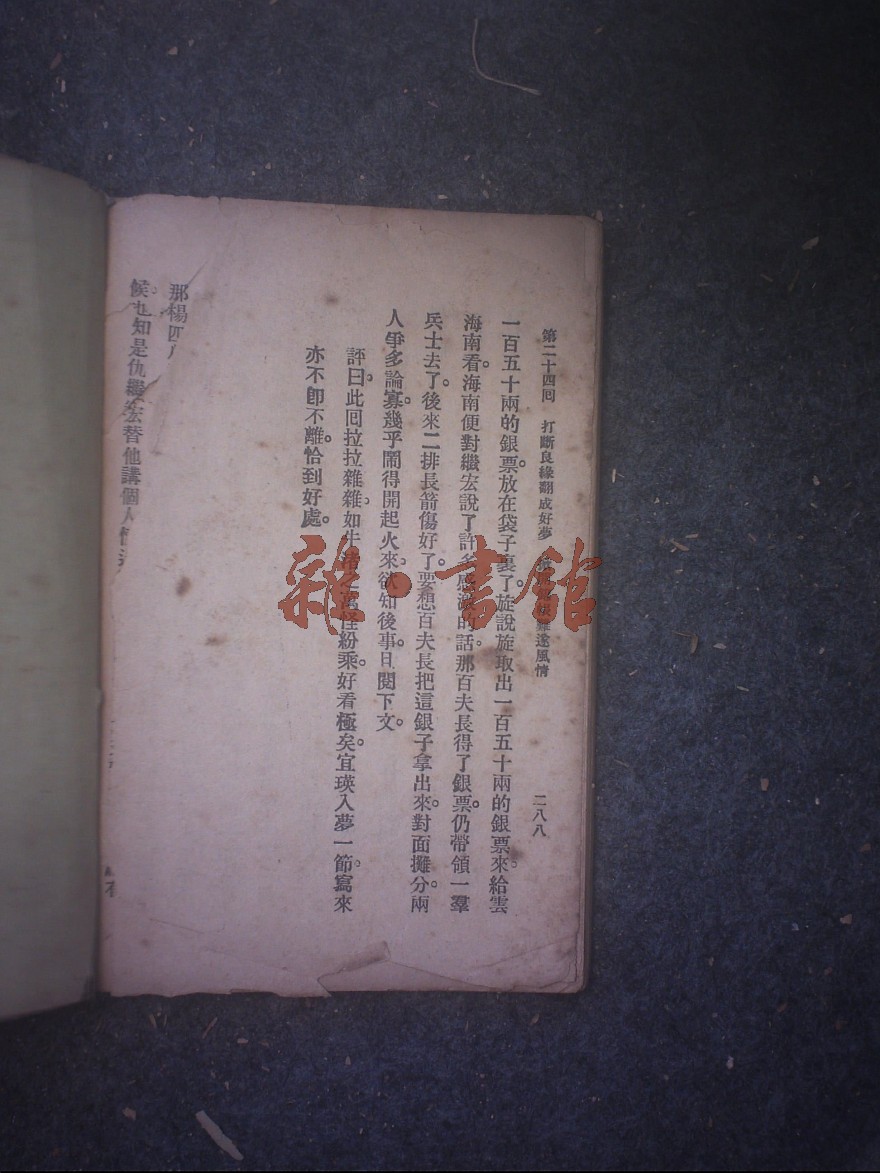 第二十四囘 打斷良緣翻成好夢 難遂風情 二八八
一百五十兩的銀票。放在袋子裏了。旋說旋取出一百五十兩的銀票來。給雲
海南看。海南便對繼宏說了許多感激的話。那百夫長得了銀票。仍帶領一羣
兵士去了。後來二排長箭傷好了。要想百夫長把這銀子拿出來。對面攤分。兩
人爭多論寡。幾乎鬧得開起火來。欲知後事。且閱下文。
評曰。此囘拉拉雜雜。如牛渚之 怪紛乘。好看極矣。宜瑛入夢一節。寫來
亦不卽不離。恰到好處。
那楊四
候。也知是仇繼宏替他講個人情
雜·書館